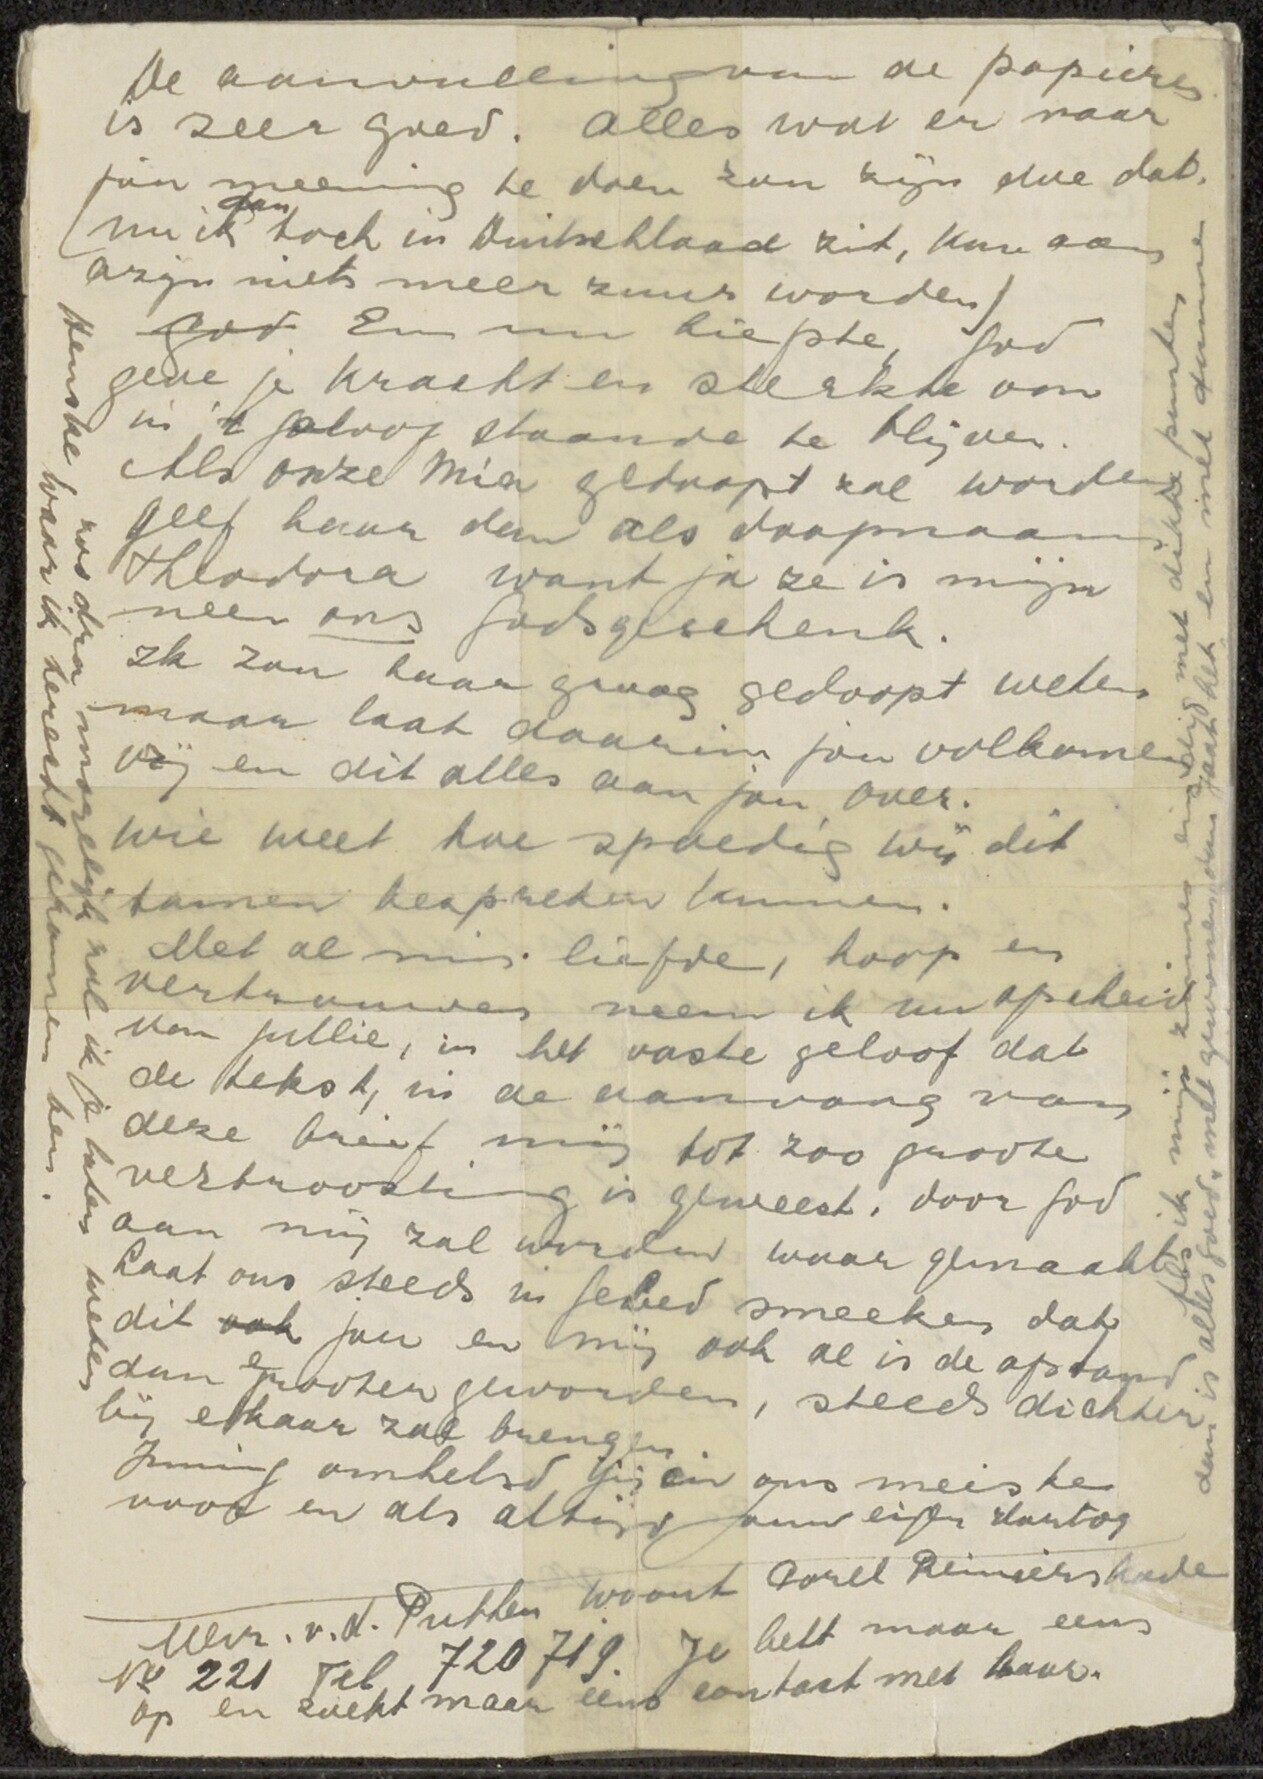 De aanvulling van de papieren
is zeer goed. Alles wat er naar
jou meening te doen zou zijn doe dat.
(nu ik dan toch in Duitschlaad zit, kan aan
azijn niets meer zuurs worden)
god En nu liefste, God
geve je kracht en sterkte om
in 't geloof staande te blijven.
Als onze Mia gedoopt zal worden
geef haar dan als doopnaam
Theodora want ja ze is mijn
neen ons Godsgeschenk.
Ik zou haar graag gedoopt weten
maar laat daarin jou volkomen
vrij en dit alles aan jou over.
wie weet hoe spoedig wij dit
samen bespreken kunnen.
Met al mijn liefde, hoop en
vertrouwen neem ik nu afscheid
van jullie, in het vaste geloof dat
de tekst, in de aanvang van
deze brief mij tot zoo groote
vertroosting is geweest, door God
aan mij zal worden waar gemaakt
Laat ons steeds in Gebed smeeken dat
dit ook jou en mij ook al is de afstand
dan grooter geworden, steeds dichter
bij elkaar zal brengen.
Innig omhelsd jij en ons meiske
voor en als altijd jouw eigen Hartog
Mevr. v.d. Putten woont Carel Reinierskade
No 221 Tel 720719. Je belt maar eens
op en zoekt maar eens contact met haar.
Henske zoo dra mogelijk zal ik je laten weten
waar ik terecht gekomen ben.
Als ik mijn zinnen eindig met dikke punten
dan is alles goed, met gewone dan gaat het en met dunne